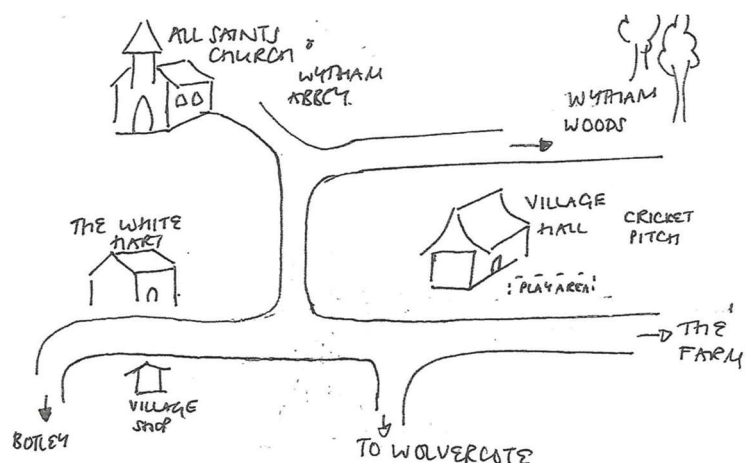 ALL SAINTS
CHURCH
WYTHAM
ABBEY
WYTHAM
WOODS
THE WHITE
HART
VILLAGE
HALL
CRICKET
PITCH
PLAY AREA
THE
FARM
VILLAGE
SHOP
BOTLEY
TO WOLVERCOTE